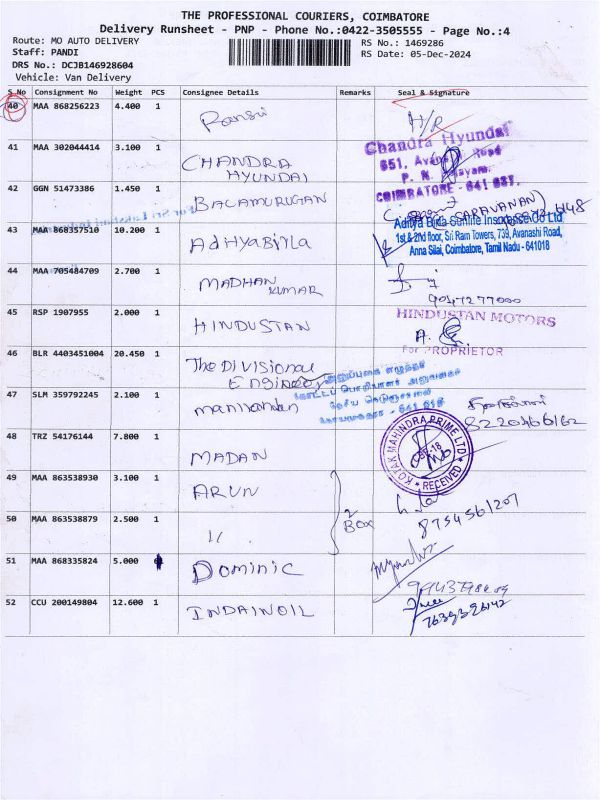 THE PROFESSIONAL COURIERS, COIMBATORE
Delivery Runsheet - PNP - Phone No.:0422-3505555 - Page No.:4
Route: MO AUTO DELIVERY
RS No.: 1469286
Staff: PANDI
RS Date: 05-Dec-2024
DRS No.: DCJB146928604
Vehicle: Van Delivery
S No Consignment No Weight PCS Consignee Details Remarks Seal & Signature
40 MAA 868256223 4.400 1 H/R
41 MAA 302044414 3.100 1 CHANDRA HYUNDAI
Chandra Hyundai
P. N.
COIMBATORE - 641 037.
42 GGN 51473386 1.450 1 BALAMURUGAN
(SARAVANAN)
43 MAA 868357510 10.200 1 AdityaBirla
Aditya Birla Sunlife Insurance Co Ltd
1st & 2nd floor, Sri Ram Towers, 739, Avanashi Road,
Anna Silai, Coimbatore, Tamil Nadu - 641018
44 MAA 705484709 2.700 1 MADHAN KUMAR
9047277000
45 RSP 1907955 2.000 1 HINDUSTAN
HINDUSTAN MOTORS
For PROPRIETOR
46 BLR 4403451004 20.450 1 The Divisional Engineer
47 SLM 359792245 2.100 1 manikandan
8220466162
48 TRZ 54176144 7.800 1 MADAN
KOTAK MAHINDRA PRIME LTD
RECEIVED
49 MAA 863538930 3.100 1 ARUN
2 Box
50 MAA 863538879 2.500 1 11
8754561207
51 MAA 868335824 5.000 Dominic
52 CCU 200149804 12.600 1 INDAINOIL
7639396142